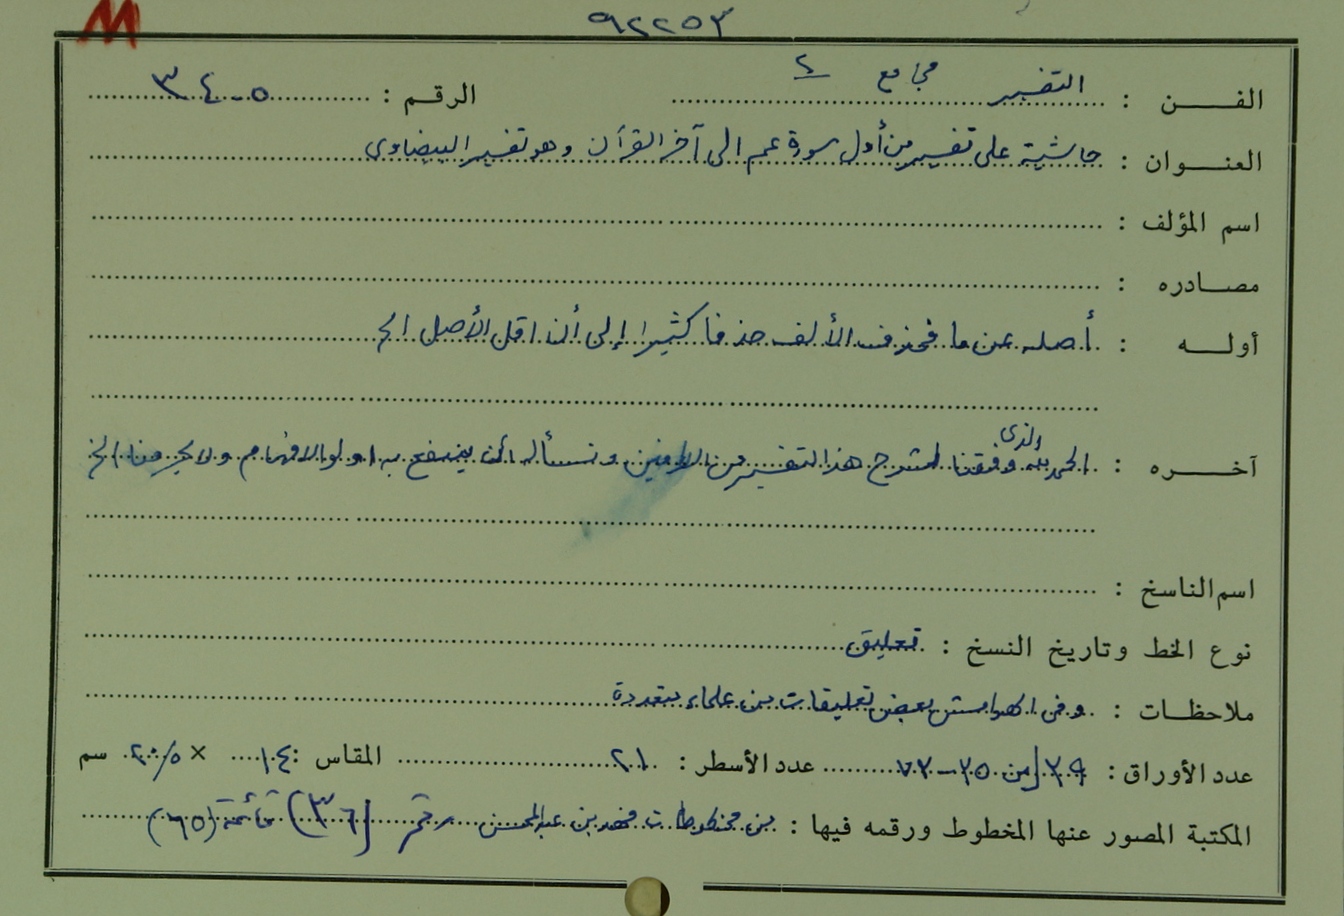 ٩٢٢٥٣
الفن : التفسير مجاميع ٤ الرقم : ٥-٣٤
العنوان : حاشية على تفسير من أول سورة عم الى آخر القرآن وهو تفسير البيضاوى
اسم المؤلف :
مصادره :
أوله : أصله عن ما فحذف الألف حذفا كثيرا إلى أن اقل الأصل الخ
آخره : الحمد لله الذى وفقنا لشرح هذا التفسير من ونسأله أن ينتفع به اولوا الافهام ولا يحرمنا الخ
اسم الناسخ :
نوع الخط وتاريخ النسخ : تعليق
ملاحظات : وفى الهوامش بعض تعليقات من علماء متعددة
عدد الأوراق : من ٢٥-٧٣ عدد الأسطر : ٢١ المقاس : ١٤ × ٢٠/٥ سم
المكتبة المصور عنها المخطوط ورقمه فيها : من مخطوطات فهد بن عبدالمحسن رقم (٣٦) قائمة (٦٥)